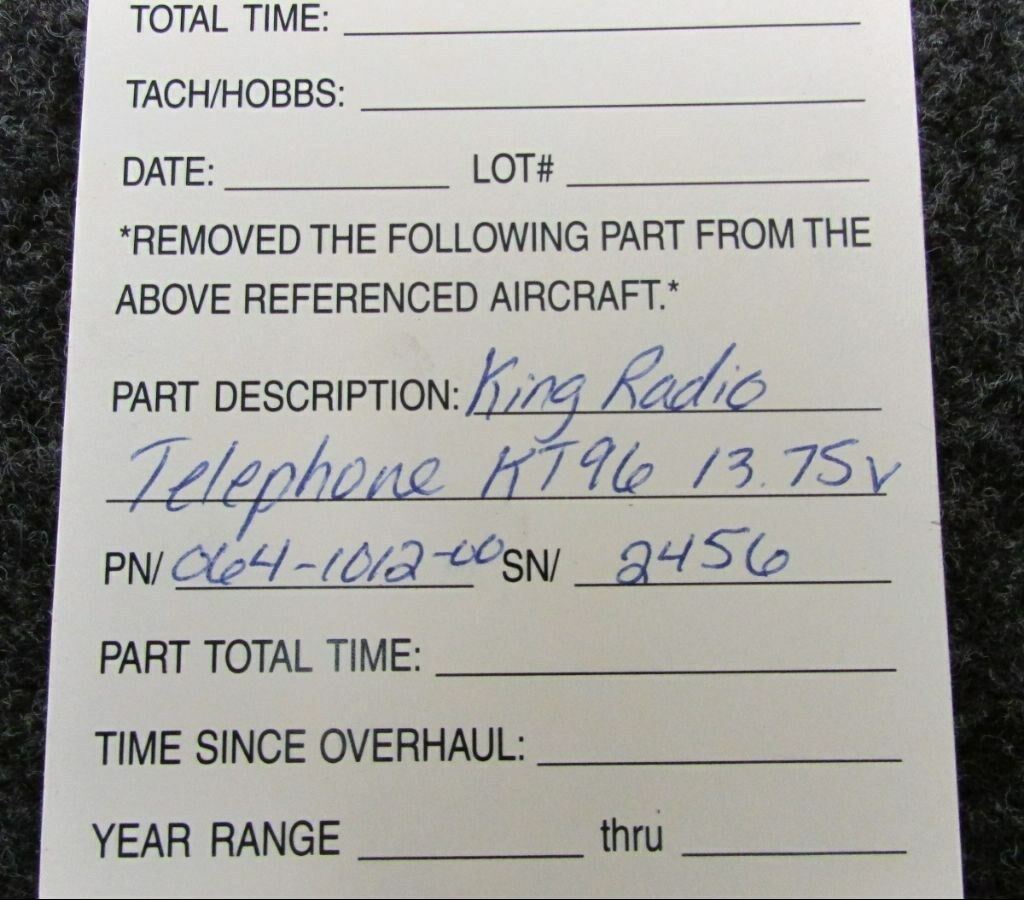 TOTAL TIME:
TACH/HOBBS:
DATE: LOT#
*REMOVED THE FOLLOWING PART FROM THE
ABOVE REFERENCED AIRCRAFT.*
PART DESCRIPTION: King Radio
Telephone KT96 13.75v
PN/ 064-1012-00 SN/ 2456
PART TOTAL TIME:
TIME SINCE OVERHAUL:
YEAR RANGE thru